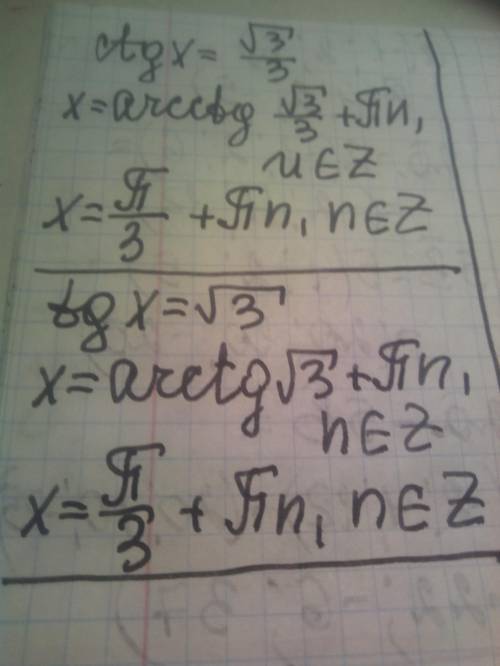 ctg x = √3/3
x = arcctg √3/3 + πn,
n ∈ Z
x = π/3 + πn, n ∈ Z
tg x = √3
x = arctg √3 + πn,
n ∈ Z
x = π/3 + πn, n ∈ Z